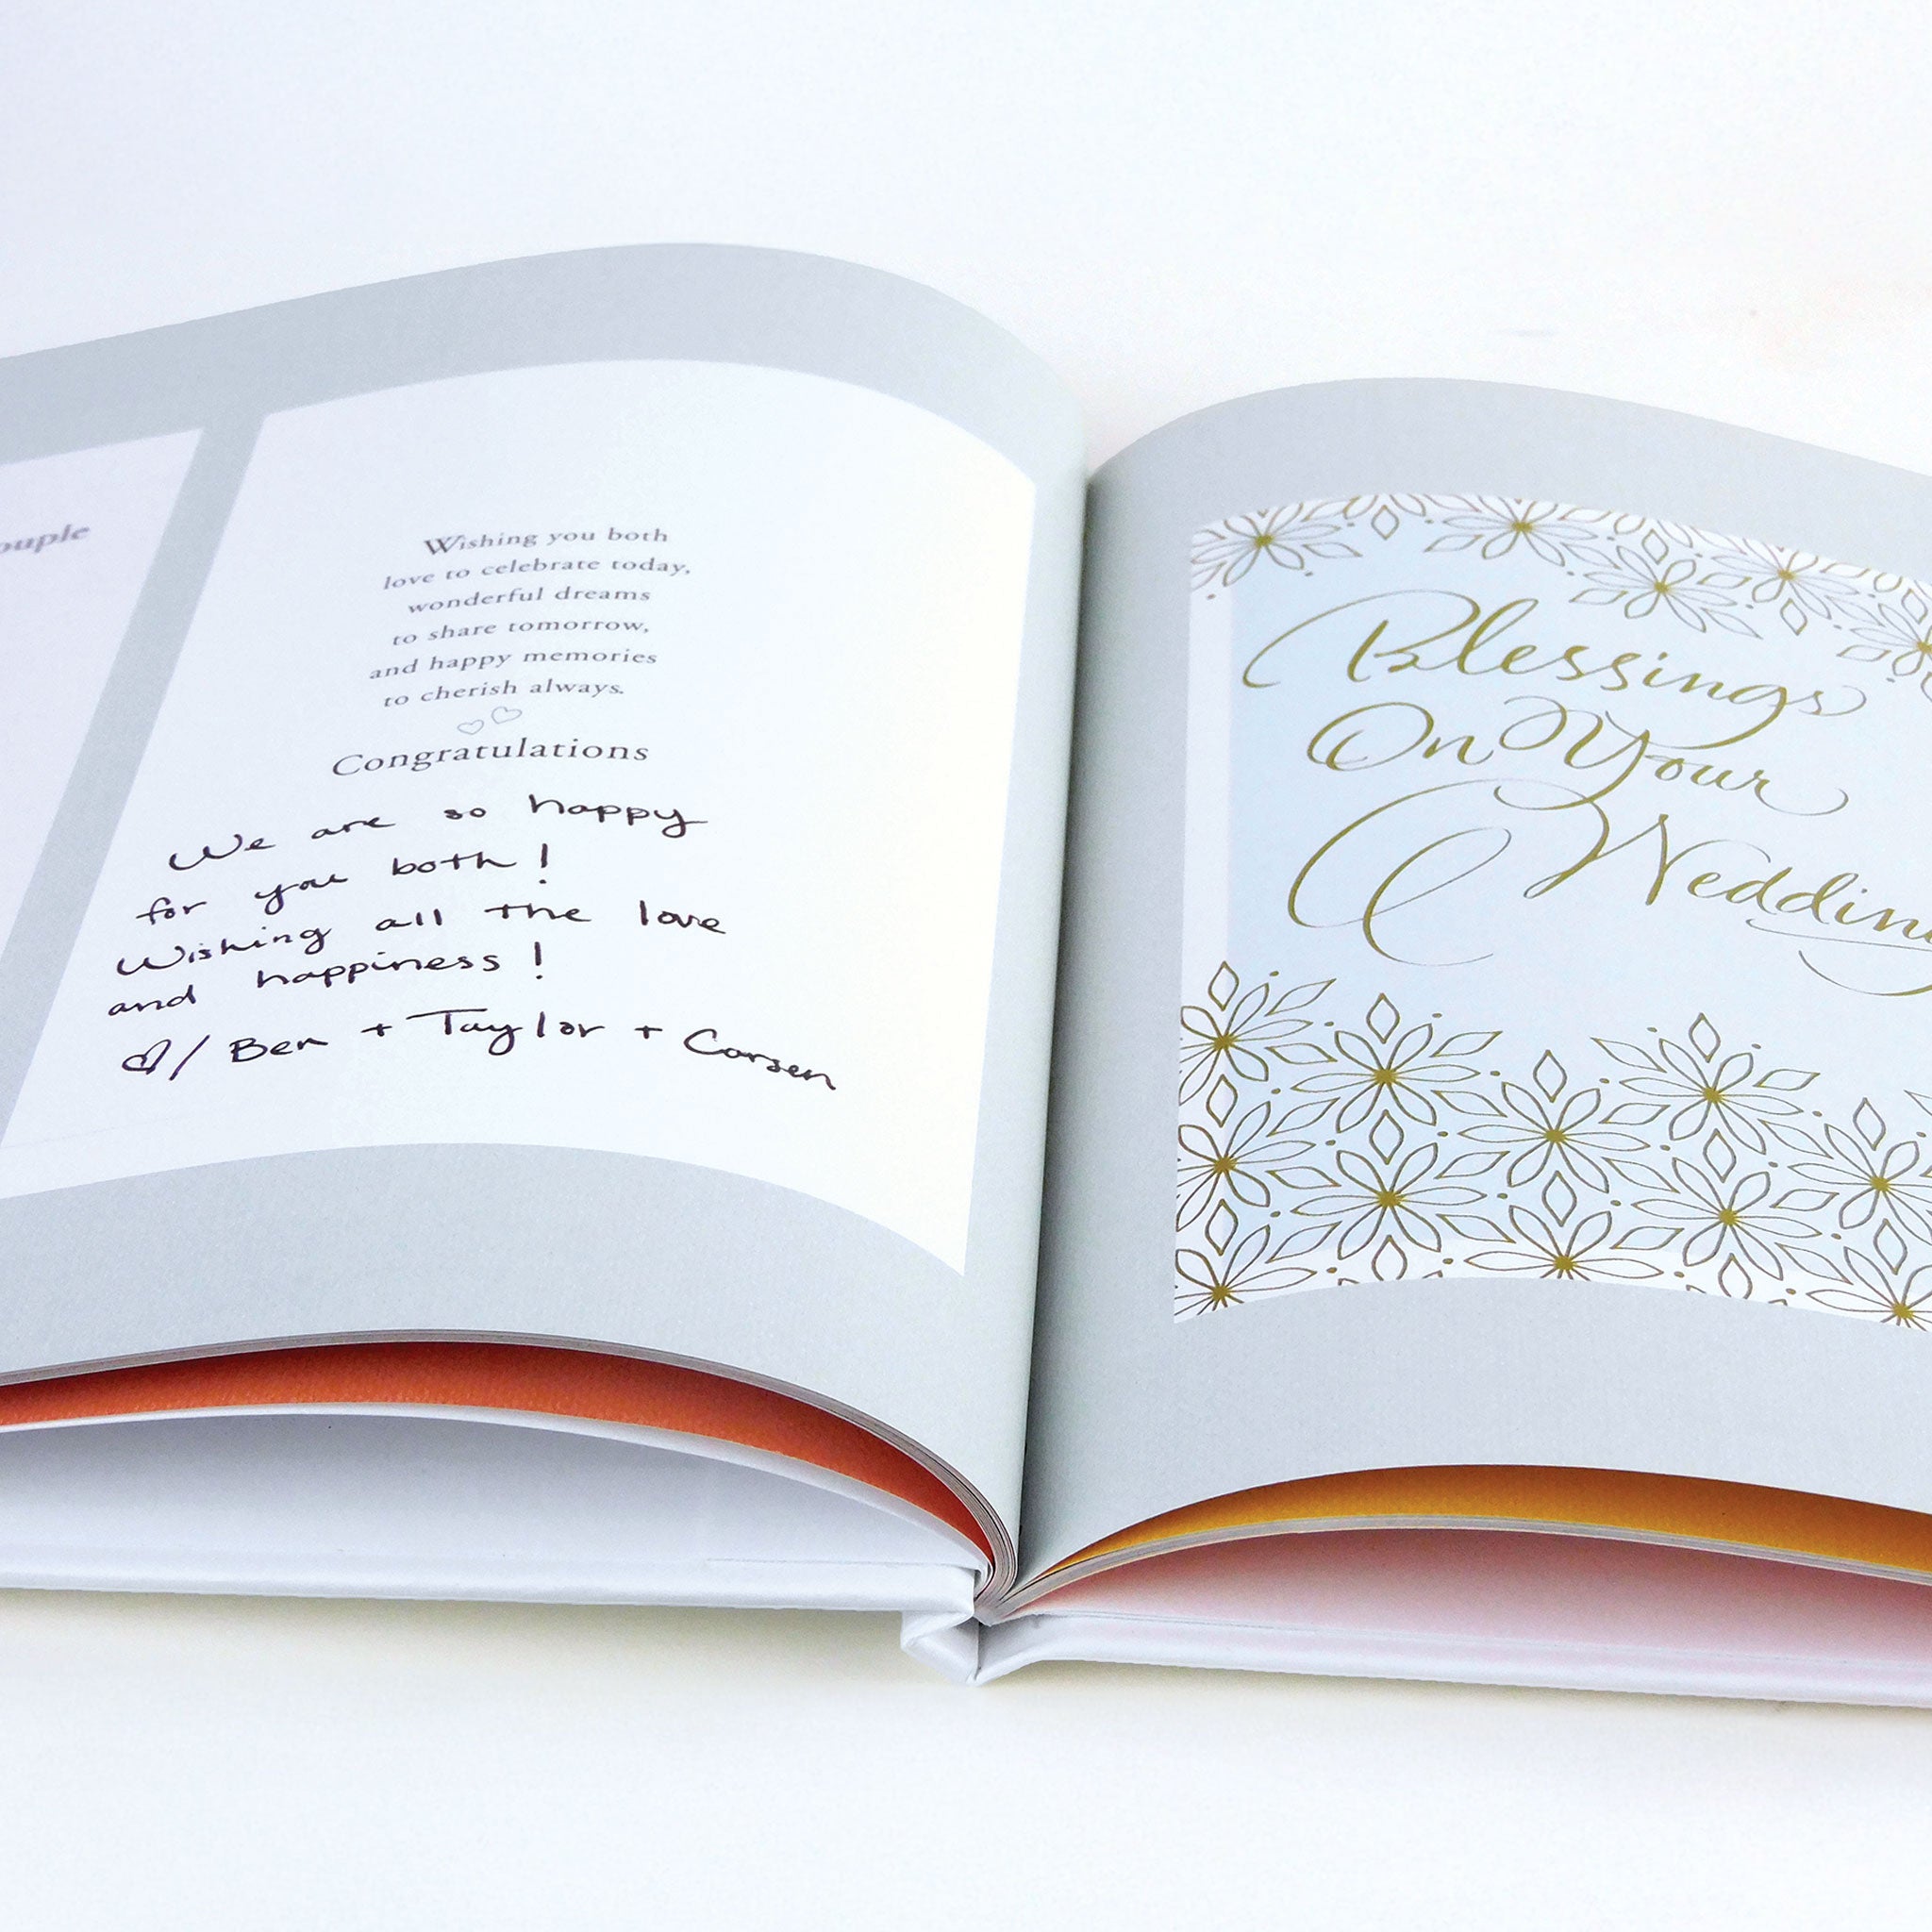 Wishing you both
love to celebrate today,
wonderful dreams
to share tomorrow,
and happy memories
to cherish always.
Congratulations
We are so happy
for you both!
Wishing all the love
and happiness!
♡/ Ben + Taylor + Carsen
Blessings
On Your
Wedding